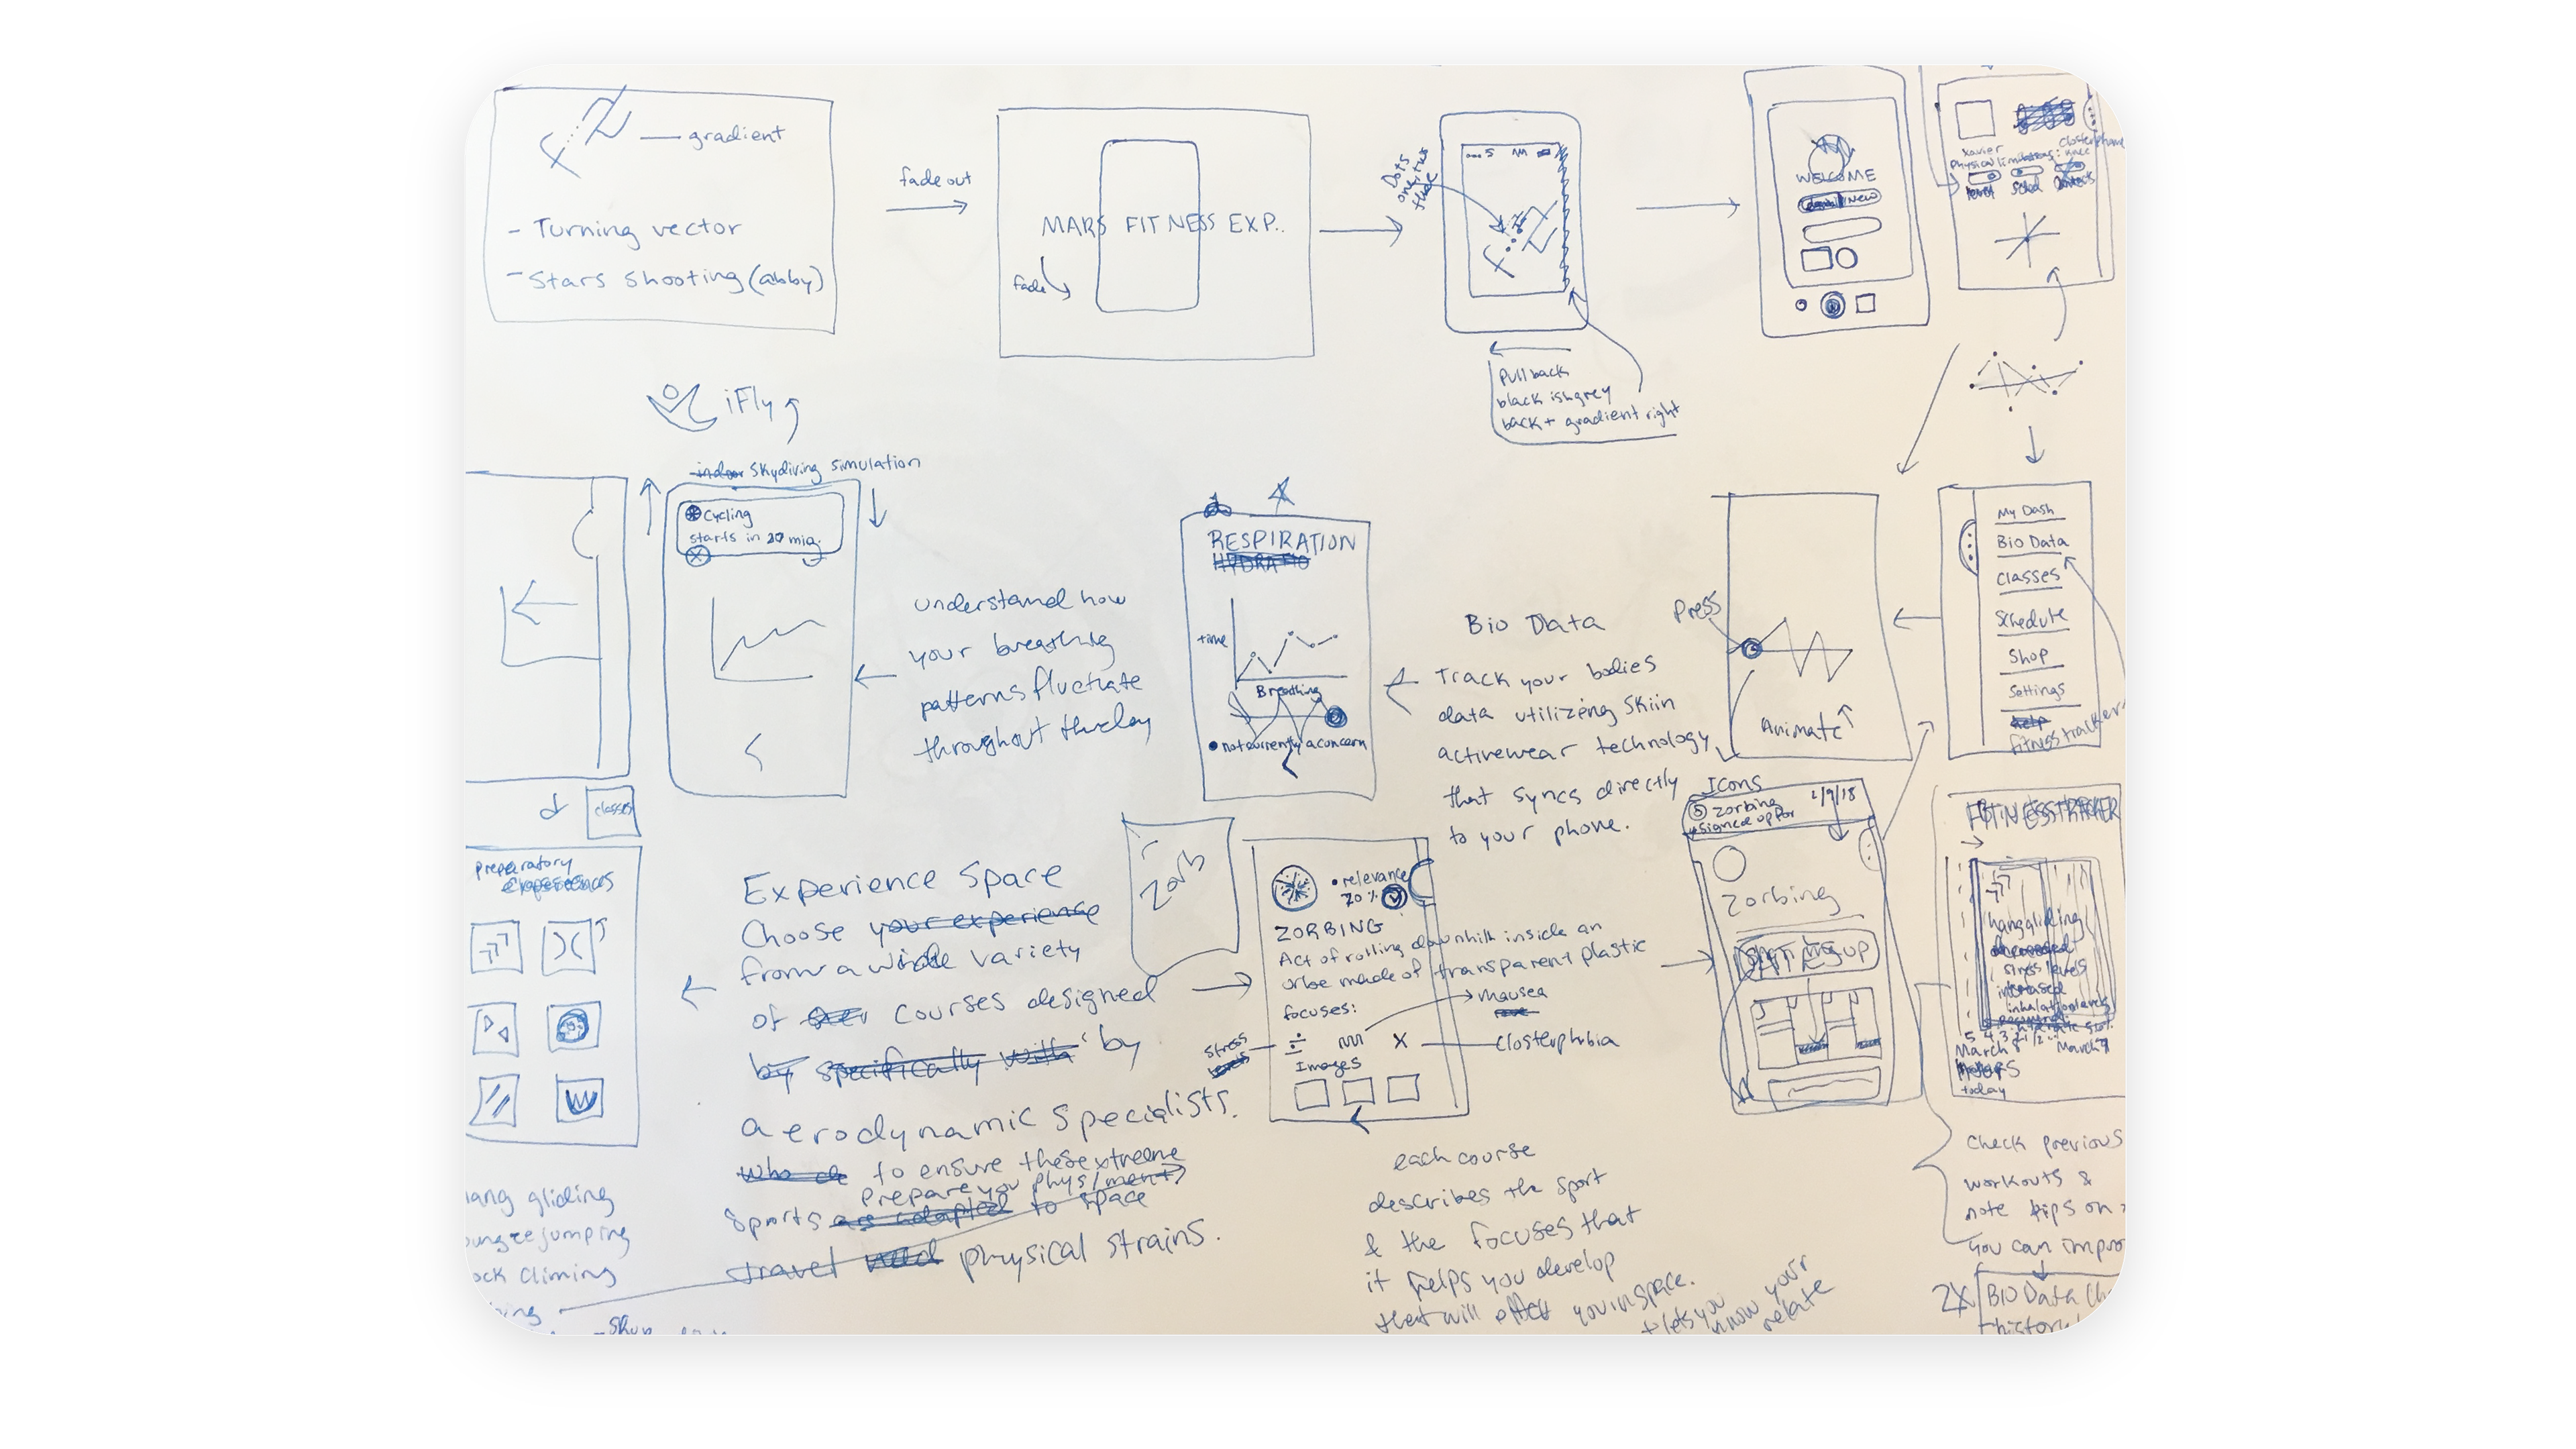 gradient
- Turning vector
- Stars shooting (abby)
fade out
MARS FITNESS EXP..
fade
Dots
Pull back
black ish grey
back + gradient right
WELCOME
New
Xavier
physical limitations: knee
iFly
indoor Skydiving simulation
Cycling
starts in 20 min.
understand how
your breathing
patterns fluctuate
throughout the day
RESPIRATION
time
Breathing
not currently a concern
Bio Data
Track your bodies
data utilizing Skiin
activewear technology
that syncs directly
to your phone.
Press
Animate
My Dash
Bio Data
Classes
Schedule
Shop
Settings
help
fitness tracker
classes
preparatory
experiences
Experience Space
Choose your experience
from a whole variety
of courses designed
by specifically with by
aerodynamic specialists.
to ensure these extreme
prepare you phys/ment
sports as adapted to space
travel need physical strains.
Zorb
relevance
70%
ZORBING
Act of rolling downhill inside an
orbe made of transparent plastic
focuses:
nausea
stress
levels
closterphobia
Images
Icons
Zorbing
signed up for
2/9/18
Zorbing
FITNESS TRACKER
hangliding
decreased
stress levels
increased
March 8
March 9
today
each course
describes the sport
& the focuses that
it helps you develop
that will effect you in space.
+ lets you
know your
relate
Check previous
workouts &
note tips on
you can impro
2X
BIO Data Ch
history
ang gliding
ungee jumping
ock climing